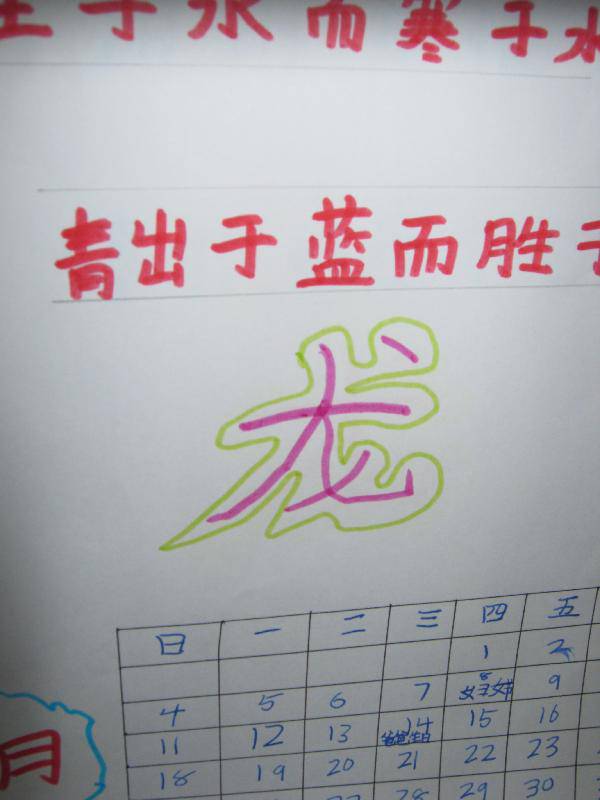 生于水而寒于水
青出于蓝而胜于
龙
日 一 二 三 四 五
1 2
4 5 6 7 8 9
11 12 13 14 15 16
18 19 20 21 22 23
27 28 29 30
月